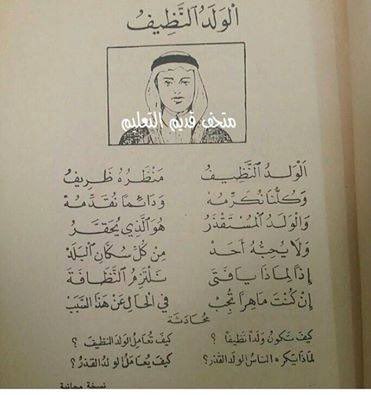 اَلْوَلَدُ النَّظِيفُ
متحف قديم التعليم
اَلْوَلَدُ النَّظِيفُ مَنْظَرُهُ ظَرِيفُ
وَكُلُّنَا نُكَرِّمُهْ وَدَائِمًا نُقَدِّمُهْ
وَالْوَلَدُ الْمُسْتَقْذَرُ هُوَ الَّذِي يُحْتَقَرُ
وَلَا يُحِبُّهُ أَحَدْ مِنْ كُلِّ سُكَّانِ الْبَلَدْ
إِذًا لِمَاذَا يَا فَتَى نَلْتَزِمُ النَّظَافَةَ
إِنْ كُنْتَ مَاهِرًا تُجِبْ فِي الْحَالِ عَنْ هَذَا السَّبَبْ
مُحَادَثَة
كَيْفَ تَكُونُ وَلَدًا نَظِيفًا ؟ كَيْفَ تُعَامِلُ الْوَلَدَ النَّظِيفَ ؟
لِمَاذَا يَكْرَهُ النَّاسُ الْوَلَدَ الْقَذِرَ ؟ كَيْفَ يُعَامَلُ الْوَلَدُ الْقَذِرُ ؟
نسخة مجانية